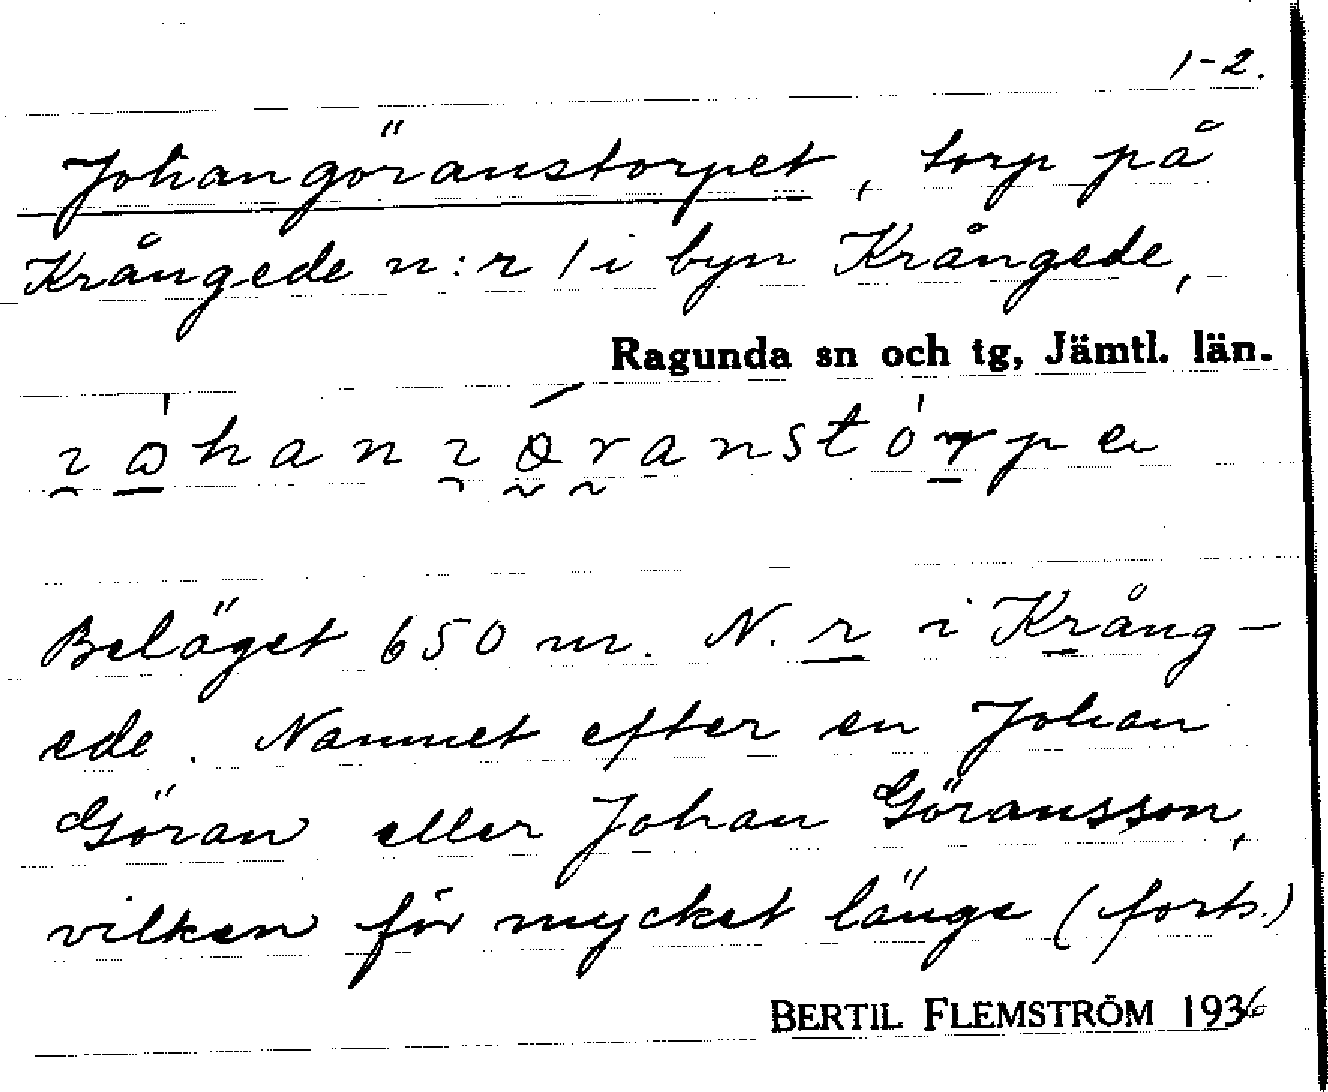 1-2.
Johangöranstorpet, torp på
Krångede n:r 1 i byn Krångede,
Ragunda sn och tg, Jämtl. län.
Beläget 650 m. N. r i Krång-
ede. Namnet efter en Johan
Göran eller Johan Göransson,
vilken för mycket länge (forts.)
BERTIL FLEMSTRÖM 1936